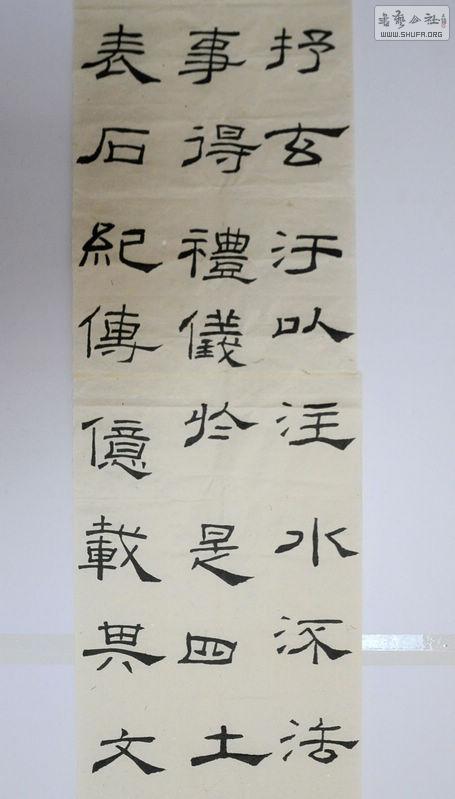 抒玄汙以注水流法
事得禮儀於是四土
表石紀傳億載其文
書藝公社
WWW.SHUFA.ORG